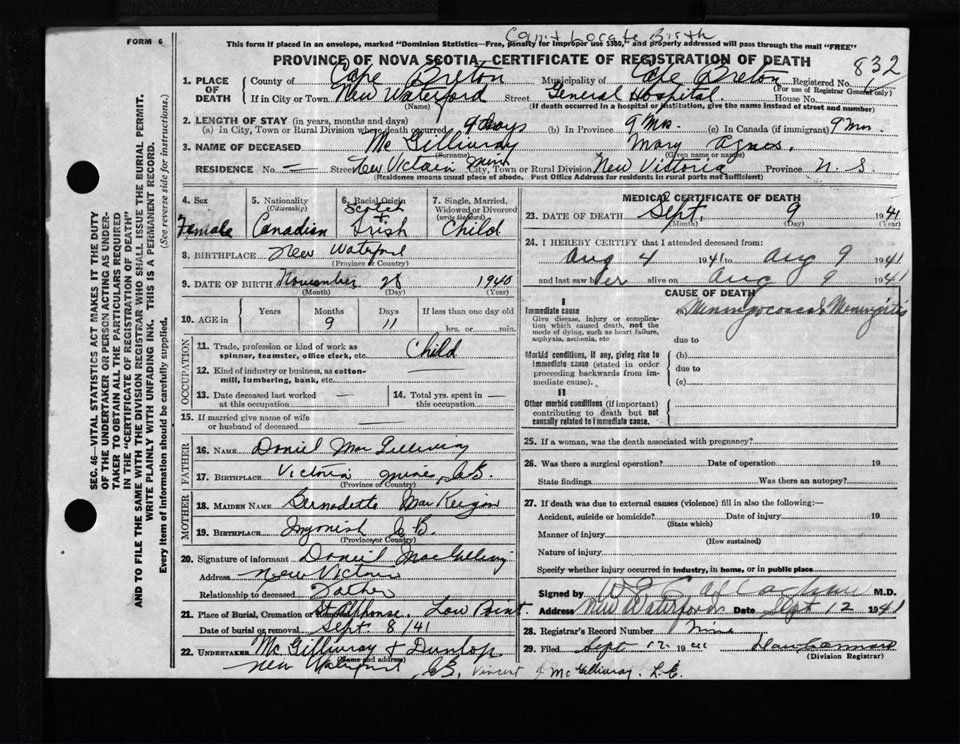 FORM 6
Can't Locate Birth
This form if placed in an envelope, marked "Dominion Statistics—Free, penalty for improper use $300," and properly addressed will pass through the mail "FREE"
PROVINCE OF NOVA SCOTIA—CERTIFICATE OF REGISTRATION OF DEATH
832
1. PLACE OF DEATH
County of Cape Breton Municipality of Cape Breton Registered No.
(For use of Registrar General only)
If in City or Town New Waterford Street General Hospital. House No.
(Name) (If death occurred in a hospital or institution, give the name instead of street and number)
2. LENGTH OF STAY (in years, months and days)
(a) In City, Town or Rural Division where death occurred 9 days (b) In Province 9 Mos. (c) In Canada (if immigrant) 9 Mos.
3. NAME OF DECEASED Mc Gillivray Mary Agnes.
(Surname) (Given name or names)
RESIDENCE No. — Street New Victoria Mines City, Town or Rural Division New Victoria Province N. S.
(Residence means usual place of abode. Post Office Address for residents in rural parts not sufficient)
4. Sex Female
5. Nationality (Citizenship) Canadian
6. Racial Origin Scotch + Irish
7. Single, Married, Widowed or Divorced (write the word) Child
8. BIRTHPLACE New Waterford
(Province or Country)
9. DATE OF BIRTH November 28 1940
(Month) (Day) (Year)
10. AGE in Years Months 9 Days 11 If less than one day old
hrs. or min.
OCCUPATION
11. Trade, profession or kind of work as spinner, teamster, office clerk, etc. Child
12. Kind of industry or business, as cotton-mill, lumbering, bank, etc.
13. Date deceased last worked at this occupation —
14. Total yrs. spent in this occupation —
15. If married give name of wife or husband of deceased
FATHER
16. NAME Daniel Mac Gillivray
17. BIRTHPLACE Victoria Mines, C.B.
(Province or Country)
MOTHER
18. MAIDEN NAME Bernadette Mac Keigan
19. BIRTHPLACE Ingonish C B.
(Province or Country)
20. Signature of informant Daniel MacGillivray
Address New Victoria
Relationship to deceased Father
21. Place of Burial, Cremation or Removal St Alphonse. Low Point.
Date of burial or removal Sept. 8/41
22. UNDERTAKER Mc Gillivray & Dunlop
(Name and address)
New Waterford C.B. Vincent J McGillivray. L.E.
MEDICAL CERTIFICATE OF DEATH
23. DATE OF DEATH Sept. 9 1941
(Month) (Day) (Year)
24. I HEREBY CERTIFY that I attended deceased from
Aug 4 1941 to Aug 9 1941
and last saw her alive on Aug 9 1941
CAUSE OF DEATH
I
Immediate cause
Give disease, injury or complication which caused death, not the mode of dying, such as heart failure, asphyxia, asthenia, etc
(a) Meningococcal Meningitis
due to
Morbid conditions, if any, giving rise to immediate cause (stated in order proceeding backwards from immediate cause).
(b)
due to
(c)
II
Other morbid conditions (if important) contributing to death but not causally related to immediate cause.
25. If a woman, was the death associated with pregnancy?
26. Was there a surgical operation? Date of operation 19
State findings Was there an autopsy?
27. If death was due to external causes (violence) fill in also the following:—
Accident, suicide or homicide? Date of injury 19
(State which)
Manner of injury
(How sustained)
Nature of injury
Specify whether injury occurred in industry, in home, or in public place
Signed by M.D.
Address New Waterford Date Sept 12 1941
28. Registrar's Record Number Nine
29. Filed Sept 12 1941
(Division Registrar)
SEC. 46—VITAL STATISTICS ACT MAKES IT THE DUTY
OF THE UNDERTAKER OR PERSON ACTING AS UNDERTAKER TO OBTAIN ALL THE PARTICULARS REQUIRED
IN THE "CERTIFICATE OF REGISTRATION OF DEATH"
AND TO FILE THE SAME WITH THE DIVISION REGISTRAR WHO SHALL ISSUE THE BURIAL PERMIT.
WRITE PLAINLY WITH UNFADING INK. THIS IS A PERMANENT RECORD.
Every item of information should be carefully supplied. (See reverse side for instructions.)